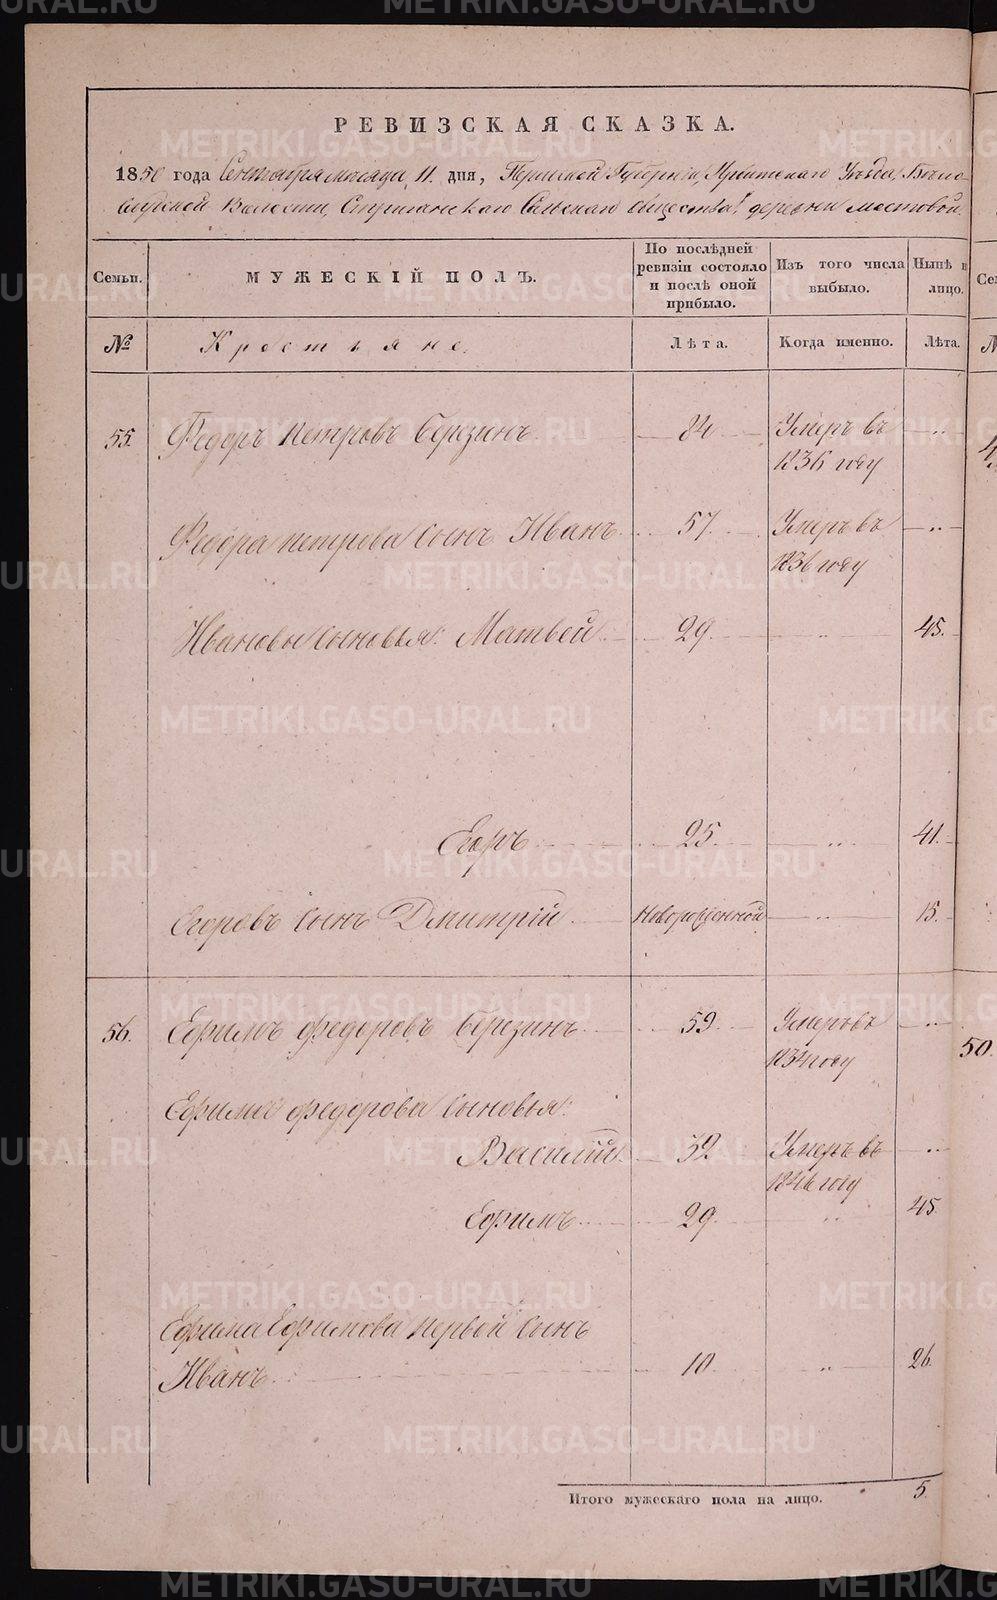 РЕВИЗСКАЯ СКАЗКА.
1850 года Сентября месяца 11 дня, Пермской Губернии, Ирбитского Уезда, Бело-
слудской Волости, Стриганского Сельскаго общества деревни Мостовой.
Семьи.
МУЖЕСКІЙ ПОЛЪ.
По послѣдней ревизіи состояло и послѣ оной прибыло.
Изъ того числа выбыло.
Нынѣ в лицо.
№
Крестьяне.
Лѣта.
Когда именно.
Лѣта.
55. Федоръ Петровъ Березинъ 84 Умеръ въ 1836 году
Федора Петрова сынъ Иванъ 57 Умеръ въ 1836 году
Ивановы сыновья: Матвей 29 45.
Егоръ 25 41.
Егоровъ сынъ Дмитрій Новорожденной 15.
56. Ефимъ Федоровъ Березинъ 59 Умеръ въ 1834 году
Ефима Федорова сыновья:
Василий 32 Умеръ въ 1846 году
Ефимъ 29 45
Ефима Ефимова первой сынъ
Иванъ 10 26.
Итого мужескаго пола на лицо. 5
50.
METRIKI.GASO-URAL.RU